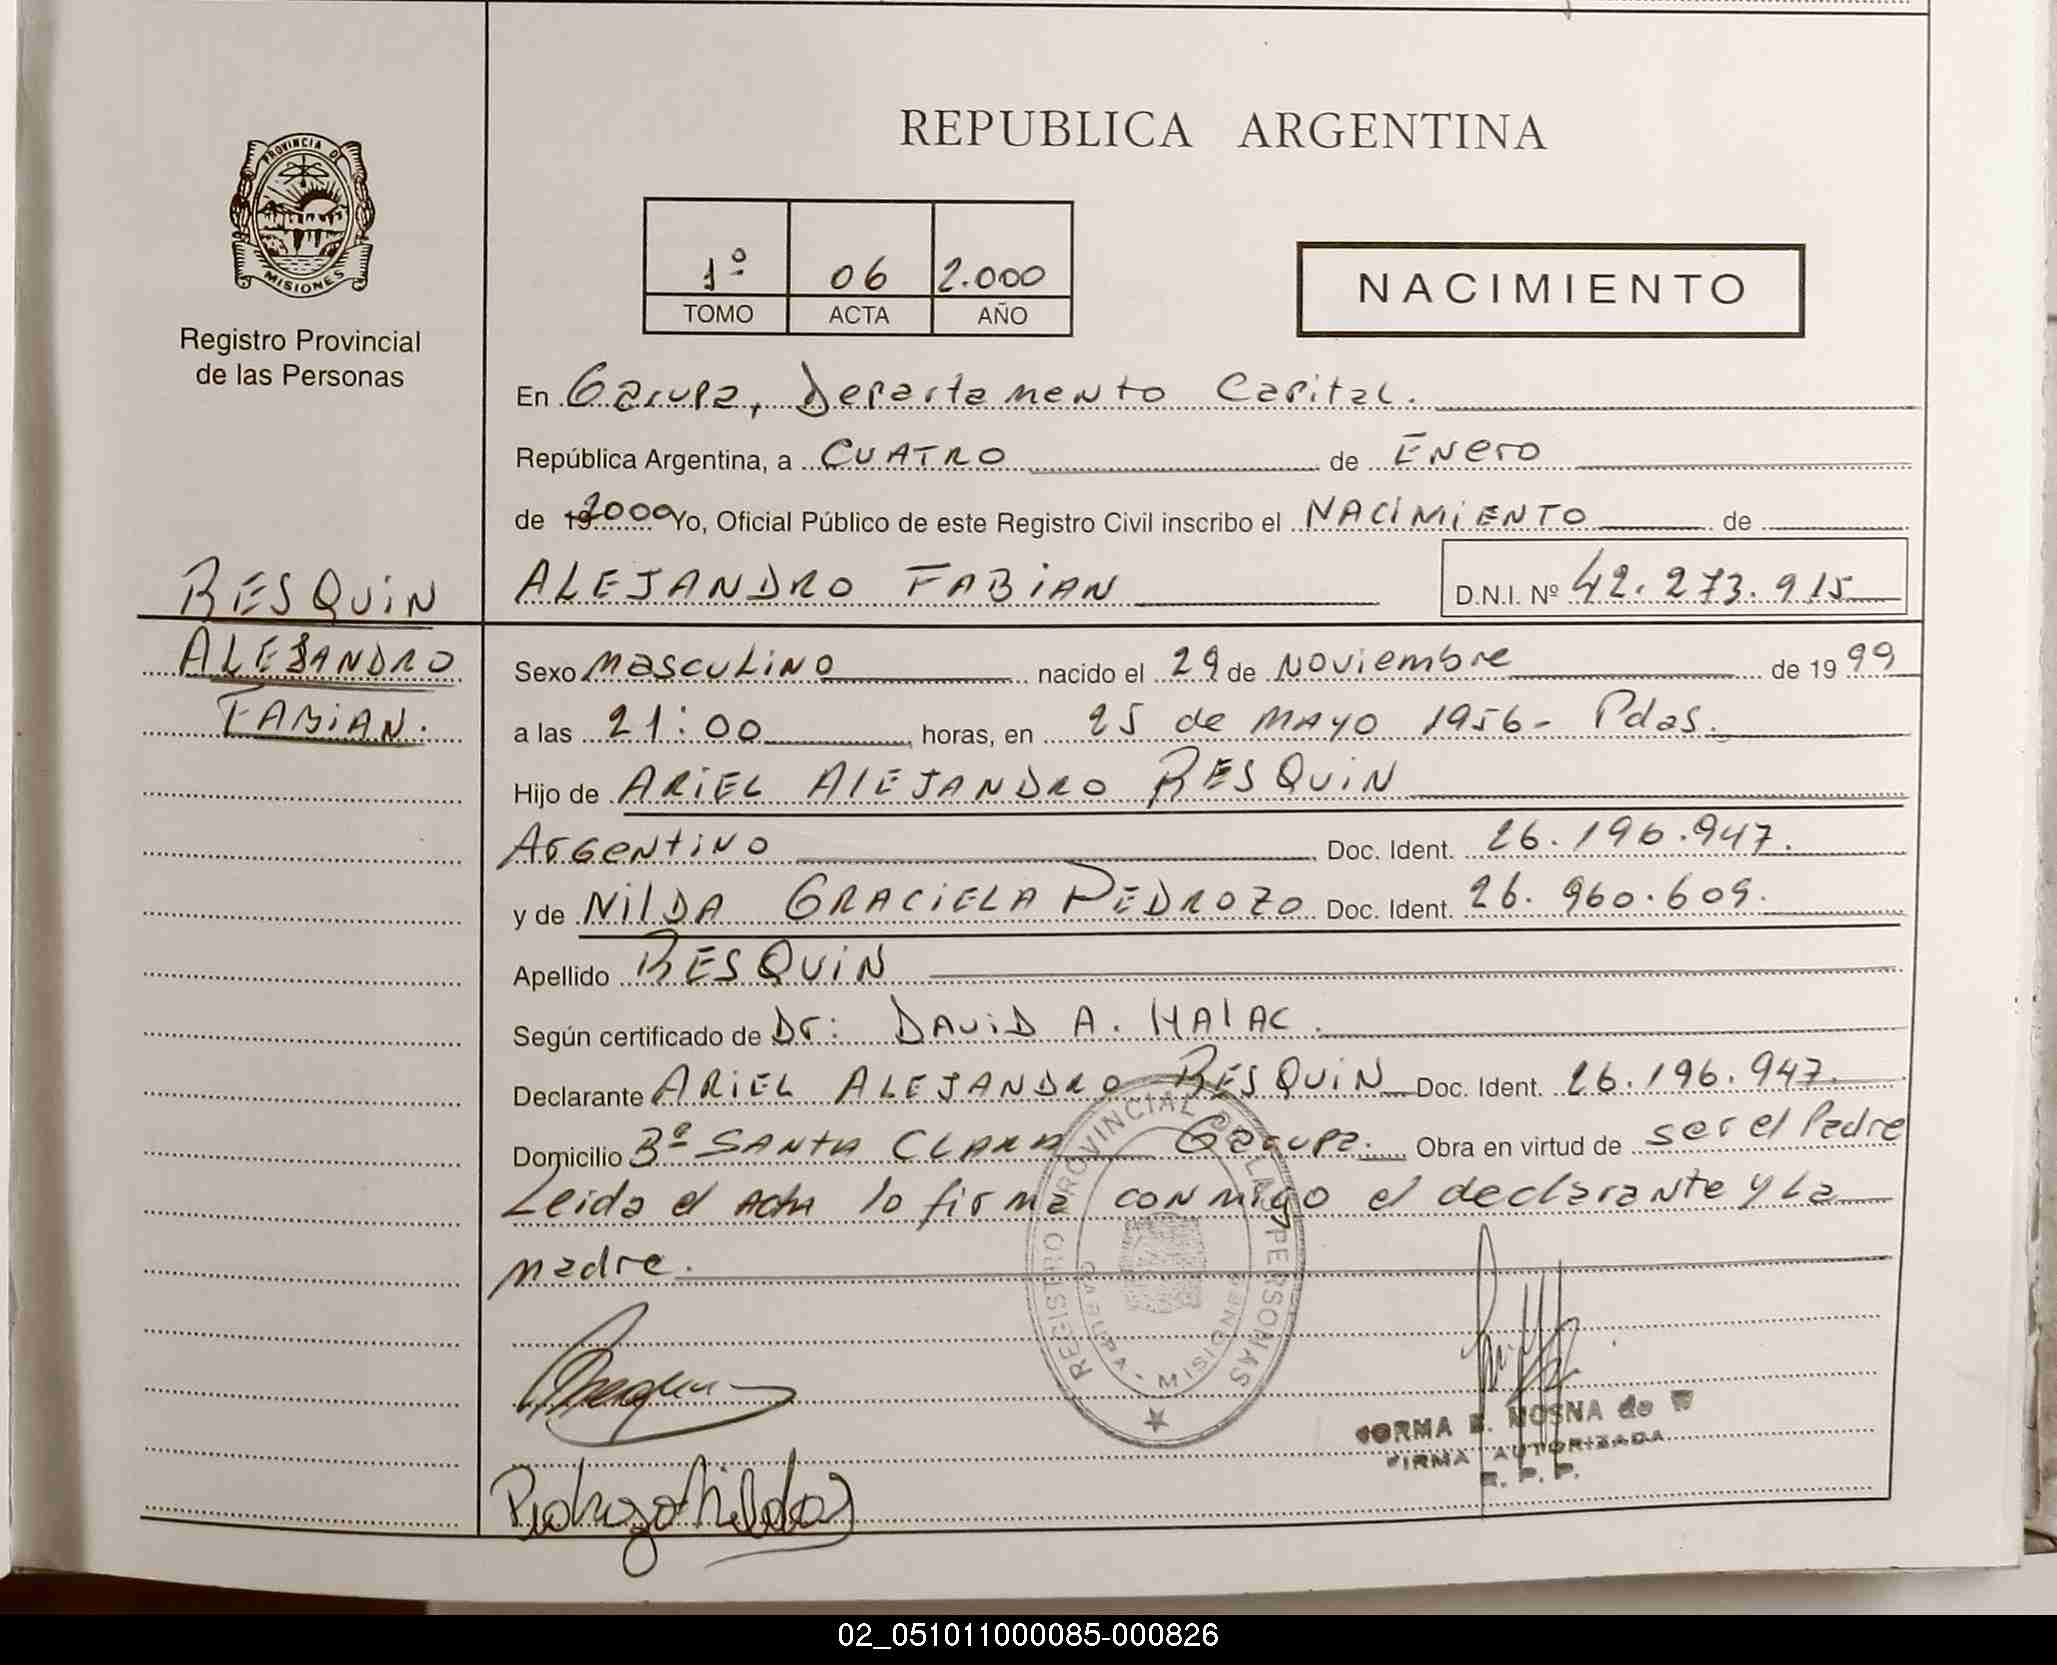 REPUBLICA ARGENTINA
PROVINCIA D
MISIONES
Registro Provincial
de las Personas
1º 06 2.000
TOMO ACTA AÑO
NACIMIENTO
En Garupa, Departamento Capital.
República Argentina, a CUATRO de Enero
de 19 2000 Yo, Oficial Público de este Registro Civil inscribo el NACIMIENTO de
RESQUIN
ALEJANDRO
FABIAN.
ALEJANDRO FABIAN D.N.I. Nº 42.273.915
Sexo masculino nacido el 29 de Noviembre de 1999
a las 21:00 horas, en 25 de MAYO 1956- Pdas.
Hijo de ARIEL ALEJANDRO RESQUIN
Argentino Doc. Ident. 26.196.947.
y de NILDA GRACIELA PEDROZO Doc. Ident. 26.960.609.
Apellido RESQUIN
Según certificado de Dr: DAVID A. HALAC.
Declarante ARIEL ALEJANDRO RESQUIN Doc. Ident. 26.196.947.
Domicilio Bº SANTA CLARA Garupa. Obra en virtud de ser el Padre
Leida el Acta lo firma conmigo el declarante y la
madre.
REGISTRO PROVINCIAL DE LAS PERSONAS
GARUPA - MISIONES
NORMA E. MOSNA de W
FIRMA AUTORIZADA
R. P. P.
Pedrozo Nilda
02_051011000085-000826